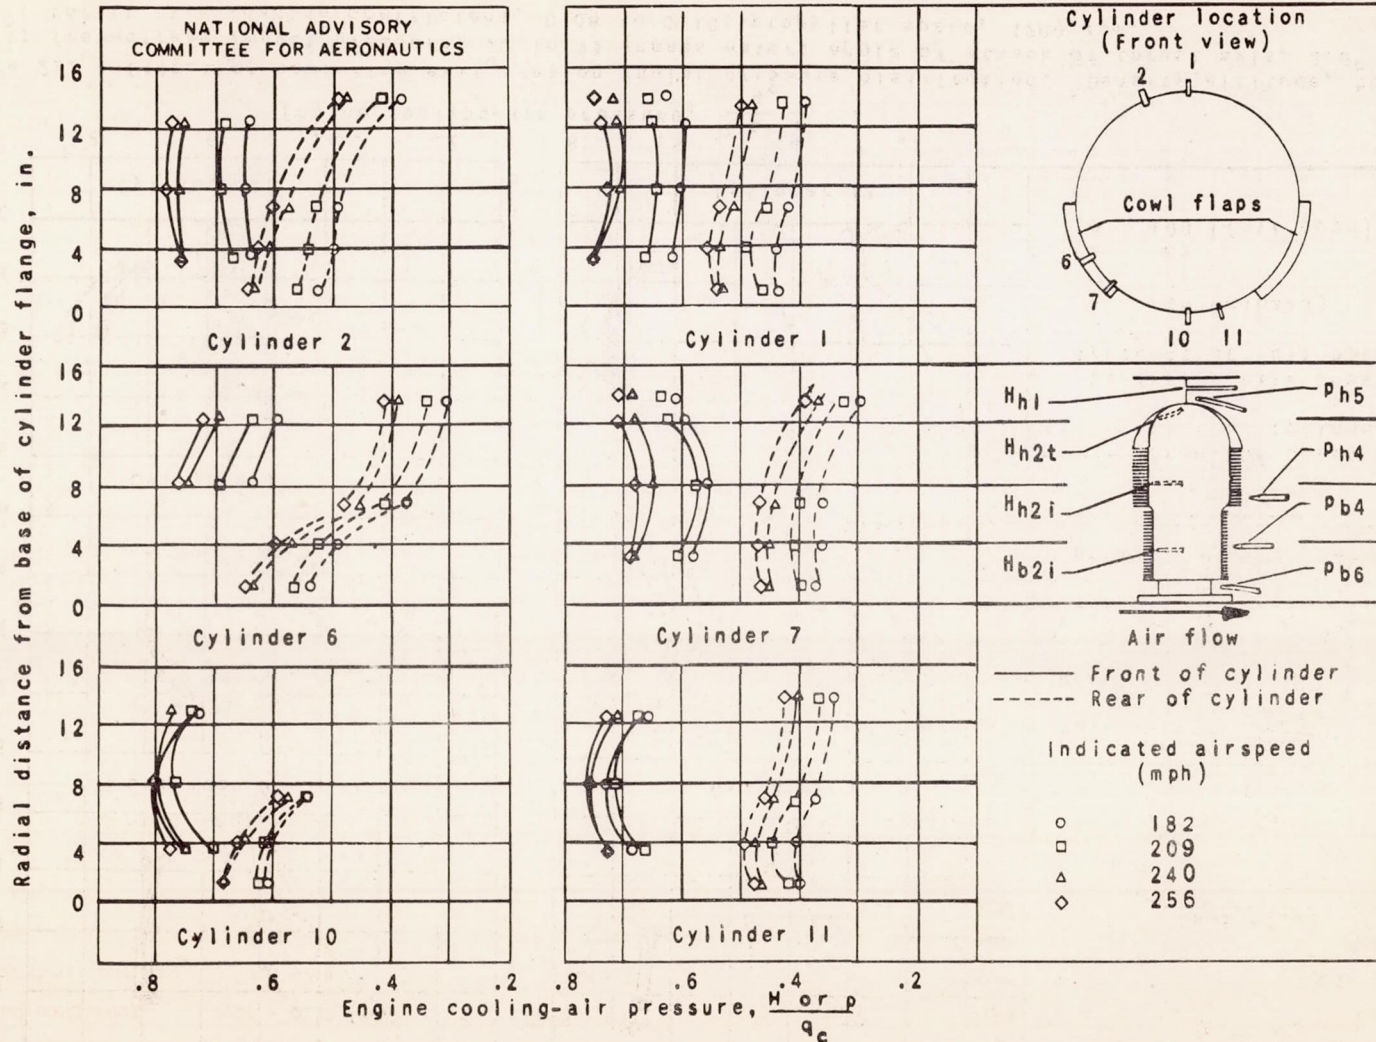 NATIONAL ADVISORY
COMMITTEE FOR AERONAUTICS
Radial distance from base of cylinder flange, in.
16
12
8
4
0
Cylinder 2
Cylinder 1
16
12
8
4
0
Cylinder 6
Cylinder 7
16
12
8
4
0
Cylinder 10
Cylinder 11
.8 .6 .4 .2
.8 .6 .4 .2
Engine cooling-air pressure, H or p
q_c
Cylinder location
(Front view)
2 1
Cowl flaps
6
7
10 11
H_h1
H_h2t
H_h2i
H_b2i
p_h5
p_h4
p_b4
p_b6
Air flow
Front of cylinder
Rear of cylinder
Indicated airspeed
(mph)
182
209
240
256